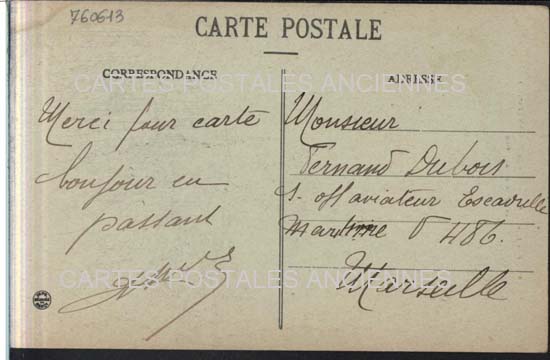 760613
CARTE POSTALE
CORRESPONDANCE
ADRESSE
CARTES POSTALES ANCIENNES
Merci pour carte
bonjour en
passant
Monsieur
Fernand Dubois
S. off aviateur Escadrille
Maritime 486
Marseille
CARTES POSTALES ANCIENNES